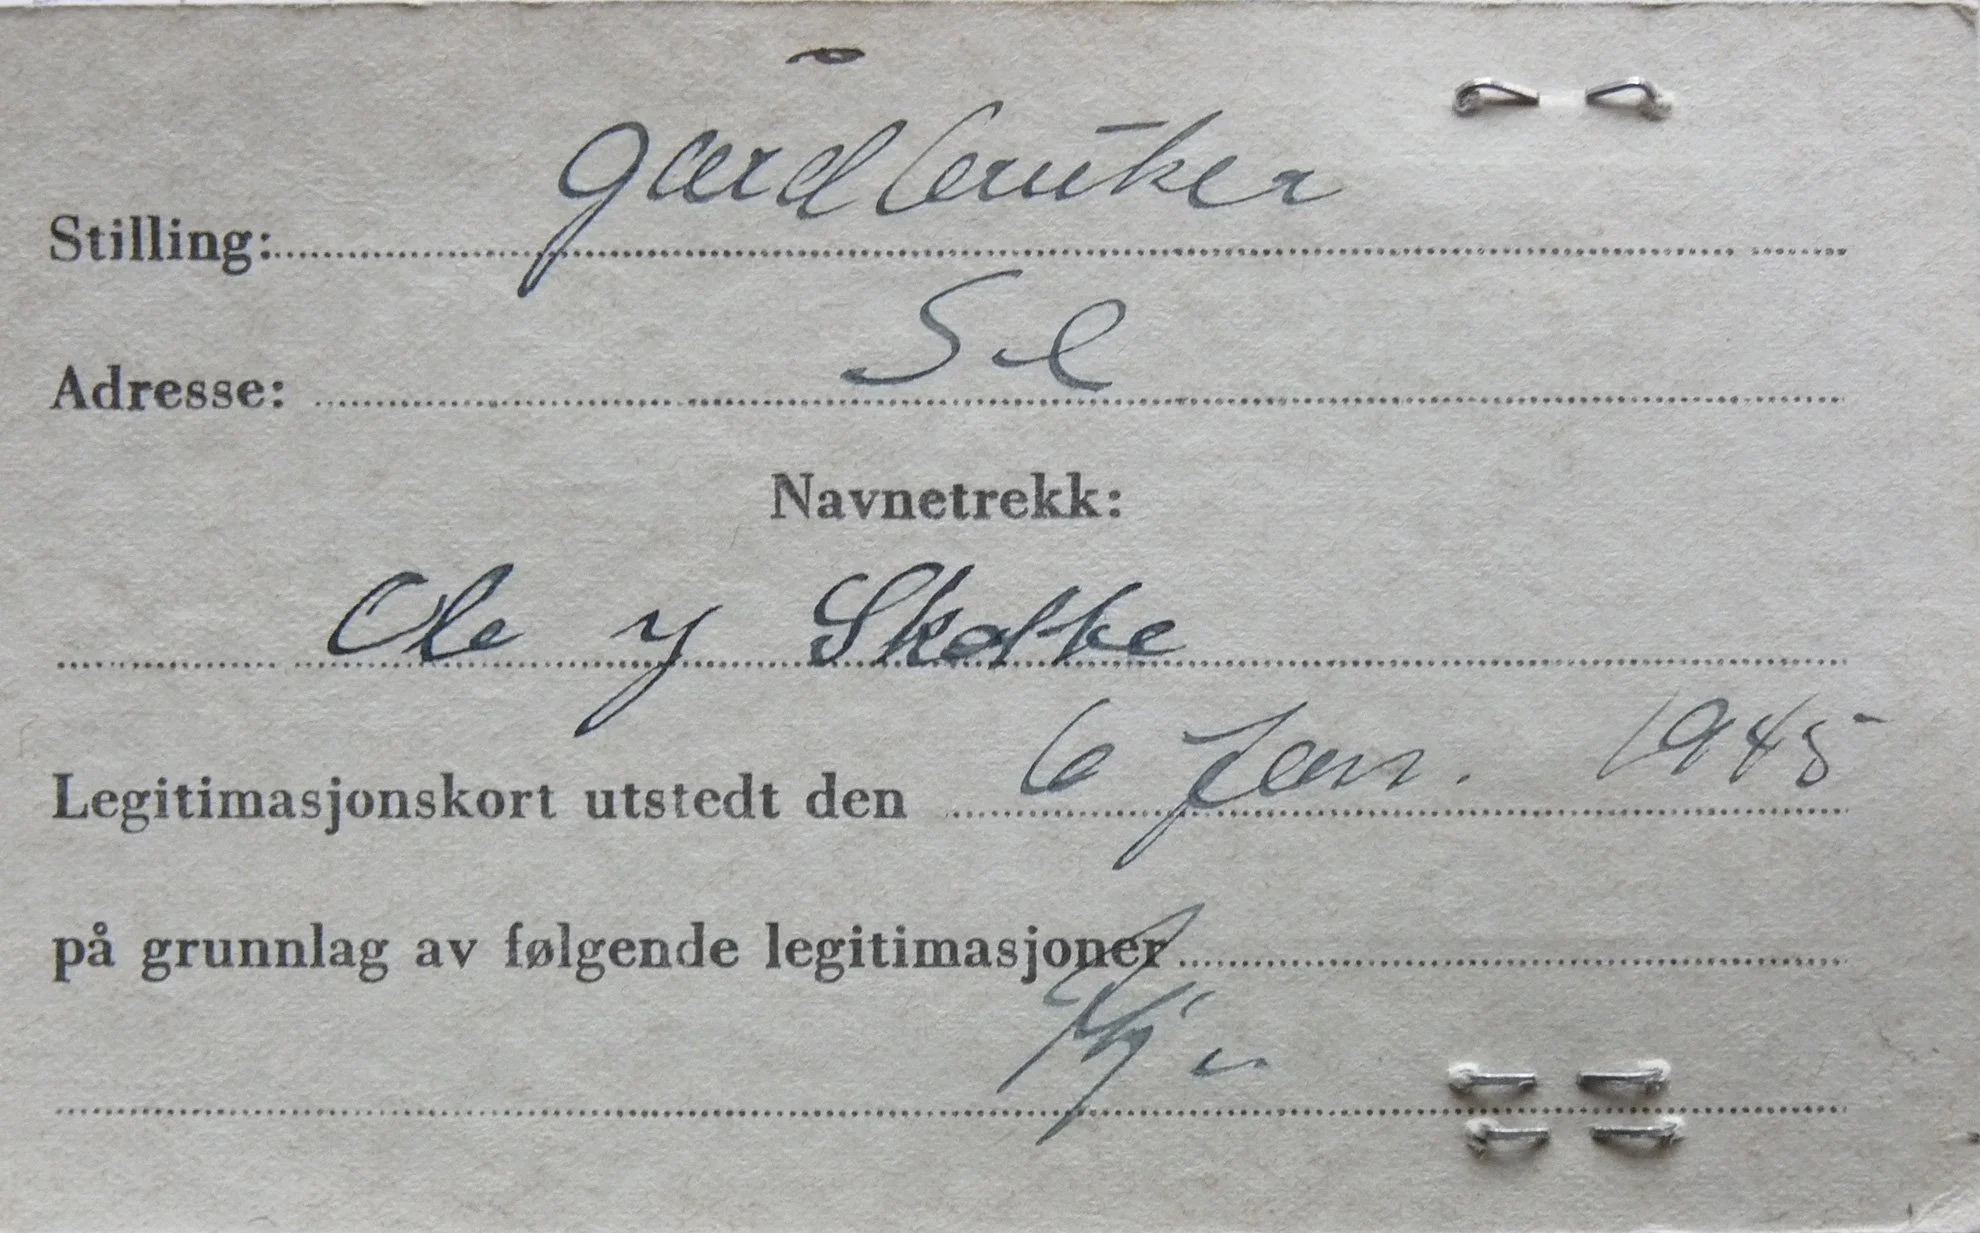 Stilling: gardbruker
Adresse: Sel
Navnetrekk:
Ole
Legitimasjonskort utstedt den 6 Jan. 1945
på grunnlag av følgende legitimasjoner